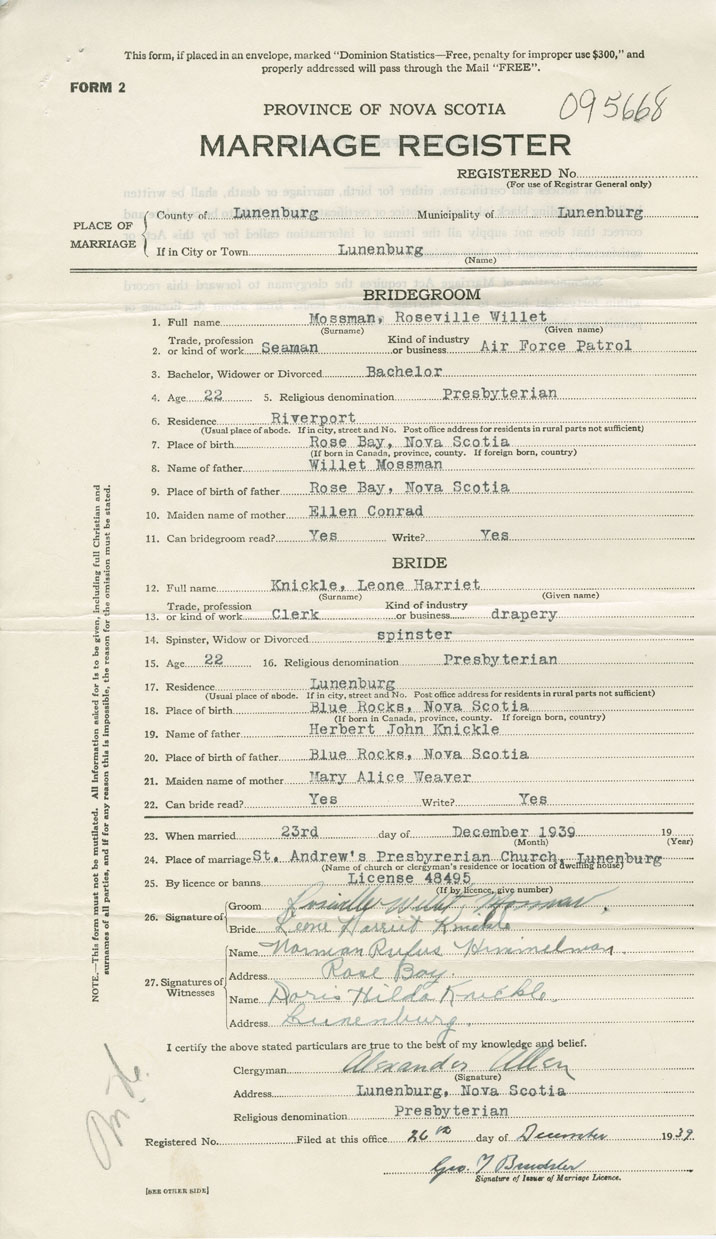 This form, if placed in an envelope, marked "Dominion Statistics—Free, penalty for improper use $300," and
properly addressed will pass through the Mail "FREE".
FORM 2
095668
PROVINCE OF NOVA SCOTIA
MARRIAGE REGISTER
REGISTERED No.
(For use of Registrar General only)
PLACE OF MARRIAGE
County of Lunenburg Municipality of Lunenburg
If in City or Town Lunenburg
(Name)
BRIDEGROOM
1. Full name Mossman, Roseville Willet
(Surname) (Given name)
2. Trade, profession or kind of work Seaman Kind of industry or business Air Force Patrol
3. Bachelor, Widower or Divorced Bachelor
4. Age 22 5. Religious denomination Presbyterian
6. Residence Riverport
(Usual place of abode. If in city, street and No. Post office address for residents in rural parts not sufficient)
7. Place of birth Rose Bay, Nova Scotia
(If born in Canada, province, county. If foreign born, country)
8. Name of father Willet Mossman
9. Place of birth of father Rose Bay, Nova Scotia
10. Maiden name of mother Ellen Conrad
11. Can bridegroom read? Yes Write? Yes
BRIDE
12. Full name Knickle, Leone Harriet
(Surname) (Given name)
13. Trade, profession or kind of work Clerk Kind of industry or business drapery
14. Spinster, Widow or Divorced spinster
15. Age 22 16. Religious denomination Presbyterian
17. Residence Lunenburg
(Usual place of abode. If in city, street and No. Post office address for residents in rural parts not sufficient)
18. Place of birth Blue Rocks, Nova Scotia
(If born in Canada, province, county. If foreign born, country)
19. Name of father Herbert John Knickle
20. Place of birth of father Blue Rocks, Nova Scotia
21. Maiden name of mother Mary Alice Weaver
22. Can bride read? Yes Write? Yes
23. When married 23rd day of December 1939 19
(Month) (Year)
24. Place of marriage St. Andrew's Presbyrerian Church, Lunenburg
(Name of church or clergyman's residence or location of dwelling house)
25. By licence or banns License 48495
(If by licence, give number)
26. Signature of
Groom Roseville Willet Mossman.
Bride Leone Harriet Knickle
27. Signatures of Witnesses
Name Norman Rufus Himmelman.
Address Rose Bay.
Name Doris Hilda Knickle.
Address Lunenburg.
I certify the above stated particulars are true to the best of my knowledge and belief.
Clergyman Alexander Allen
(Signature)
Address Lunenburg, Nova Scotia
Religious denomination Presbyterian
Registered No. Filed at this office 26th day of December 1939
Geo. T
Signature of Issuer of Marriage Licence.
[SEE OTHER SIDE]
NOTE.—This form must not be mutilated. All Information asked for is to be given, including full Christian and
surnames of all parties, and if for any reason this is impossible, the reason for the omission must be stated.